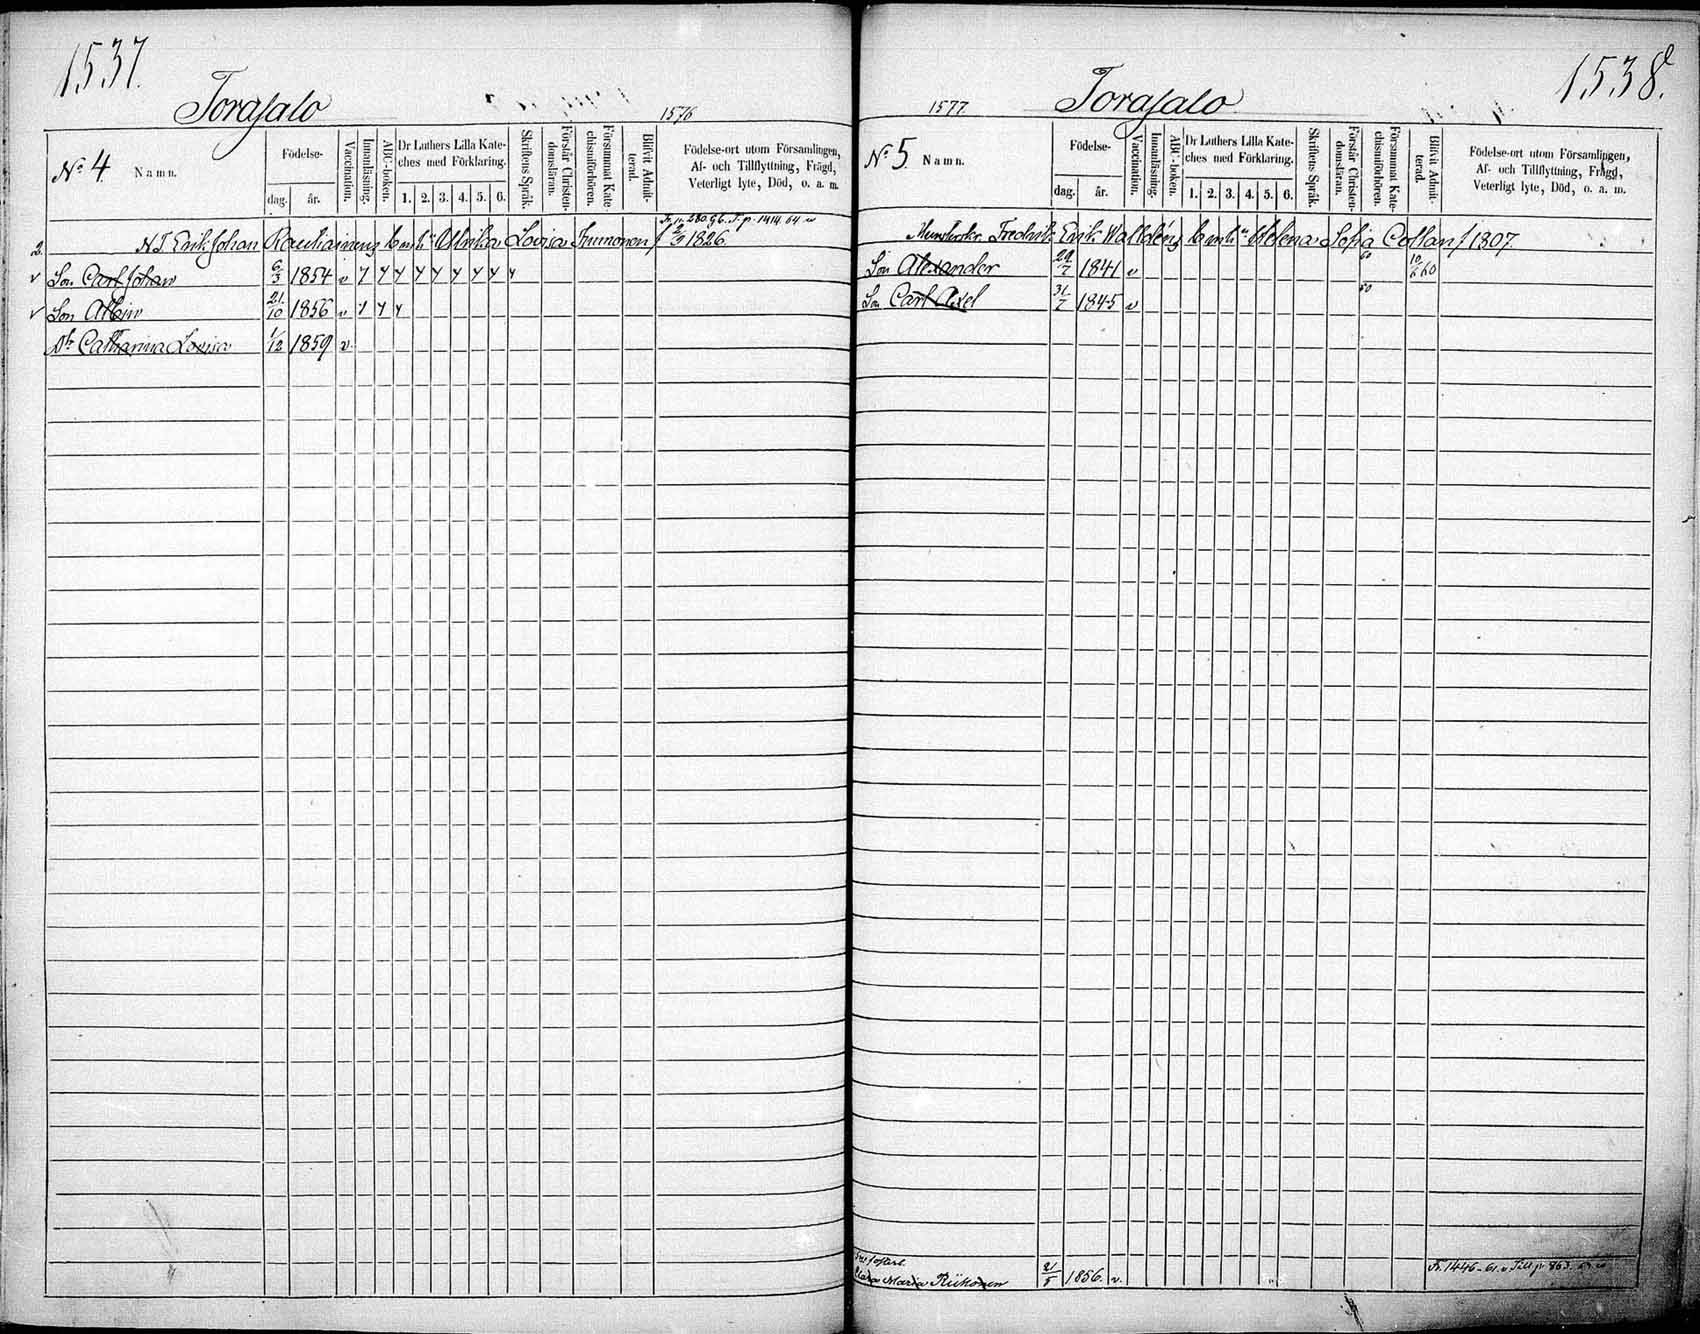 1537.
Torasalo
1576
No 4 Namn.
Födelse-
dag. år.
Vaccination.
Innanläsning.
ABC-boken.
Dr Luthers Lilla Kate-
ches med Förklaring.
1. 2. 3. 4. 5. 6.
Skriftens Språk.
Förstår Christen-
domsläran.
Försummat Kate-
chismiförhören.
Blifvit Admit-
terad.
Födelse-ort utom Församlingen,
Af- och Tillflyttning, Frägd,
Veterligt lyte, Död, o. a. m.
N.T. Erik Johan Rautiainens Ulrika Lovisa Immonen f 2/9 1826.
Son Carl Johan 6/3 1854 v
Son Albin 21/10 1856 v
Dr Catharina Lovisa 1/12 1859 v.
1538.
1577.
Torasalo
No 5. Namn.
Födelse-
dag. år.
Vaccination.
Innanläsning.
ABC-boken.
Dr Luthers Lilla Kate-
ches med Förklaring.
1. 2. 3. 4. 5. 6.
Skriftens Språk.
Förstår Christen-
domsläran.
Försummat Kate-
chismiförhören.
Blifvit Admit-
terad.
Födelse-ort utom Församlingen,
Af- och Tillflyttning, Frägd,
Veterligt lyte, Död, o. a. m.
Fredrik Erik Walldéns Helena Sofia Collan f 1807.
Son Alexander 29/7 1841 v 60 10/6 60
Son Carl Axel 31/7 1845 v 60
Maria Riikonen 21/5 1856. v. Fr. 1446-61. Till p. 863.